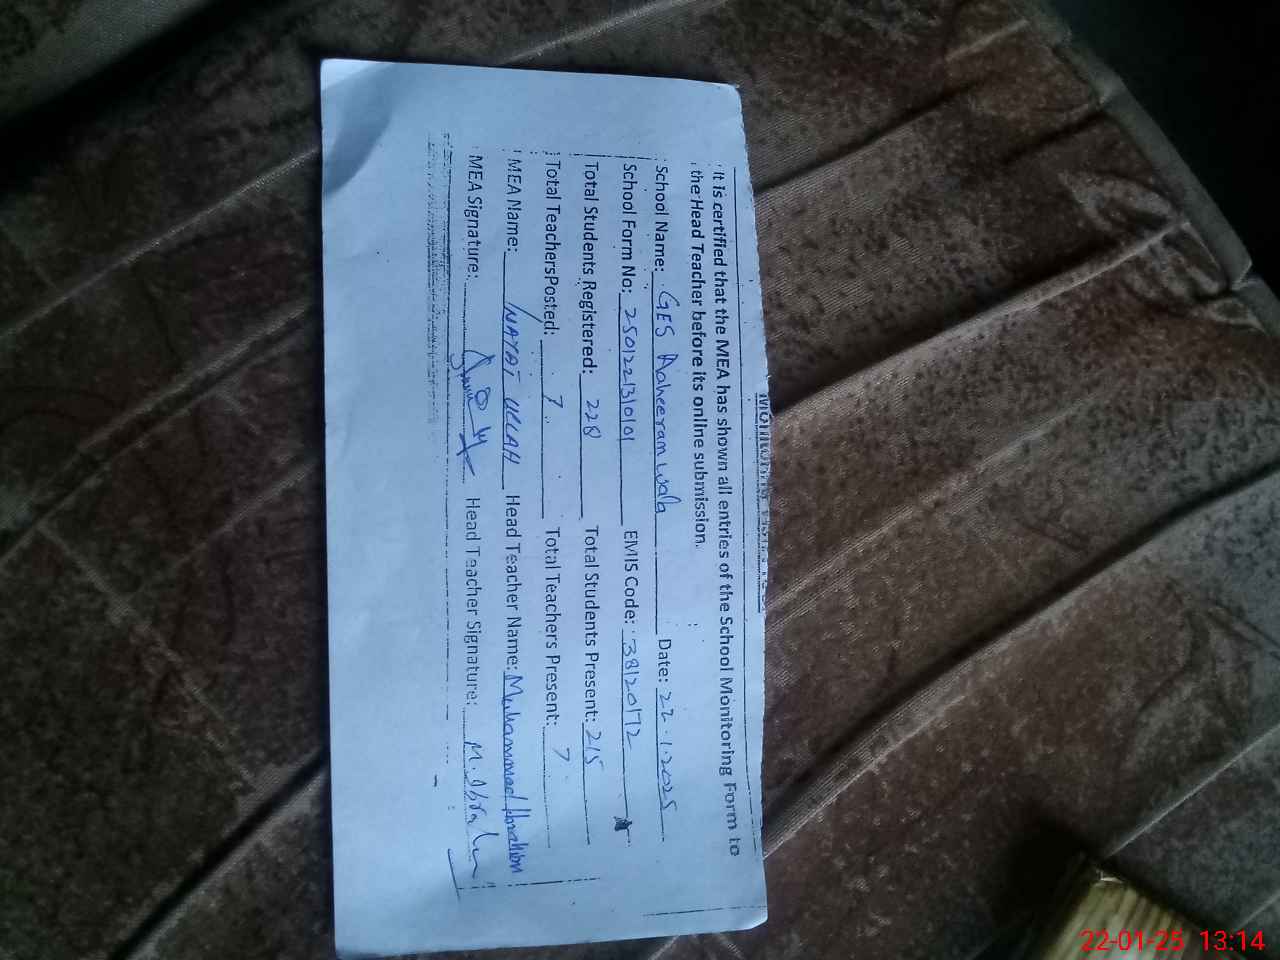 It is certified that the MEA has shown all entries of the School Monitoring Form to
the Head Teacher before its online submission.
School Name: GES Aaheeran wala Date: 22.1.2025
School Form No: 25012213101 EMIS Code: 38120172
Total Students Registered: 228 Total Students Present: 215
Total TeachersPosted: 7 Total Teachers Present: 7
MEA Name: INAYAT ULLAH Head Teacher Name: Muhammad Ibrahim
MEA Signature: Head Teacher Signature: M. Ibrahim
22-01-25 13:14